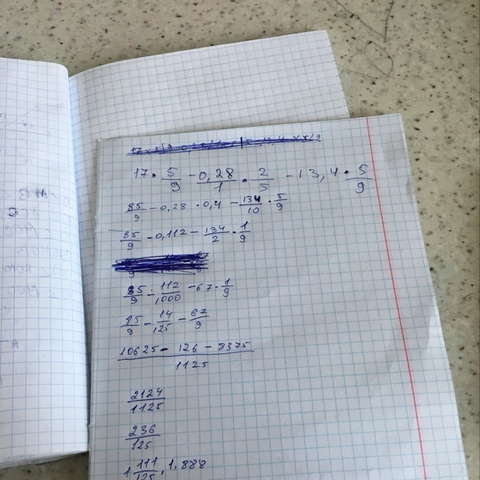 17 · 5/9 - 0,28/1 · 2/5 - 13,4 · 5/9
85/9 - 0.28 · 0,4 - 134/10 · 5/9
85/9 - 0,112 - 134/2 · 1/9
85/9 - 112/1000 - 67 · 1/9
85/9 - 14/125 - 67/9
10625 - 126 - 8375/1125
2124/1125
236/125
1 111/125, 1.888